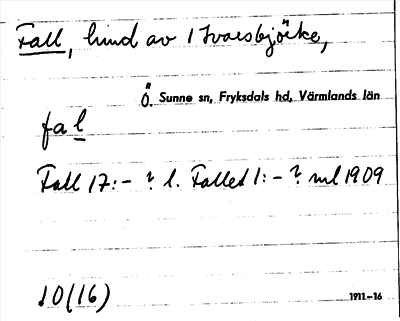 Fall, hmd av 1 Ivarsbjörke,
Ö. Sunne sn, Fryksdals hd, Värmlands län
fal
Fall 17:- ? l. Fallet 1:- ? ml 1909
10(16)
1911-16